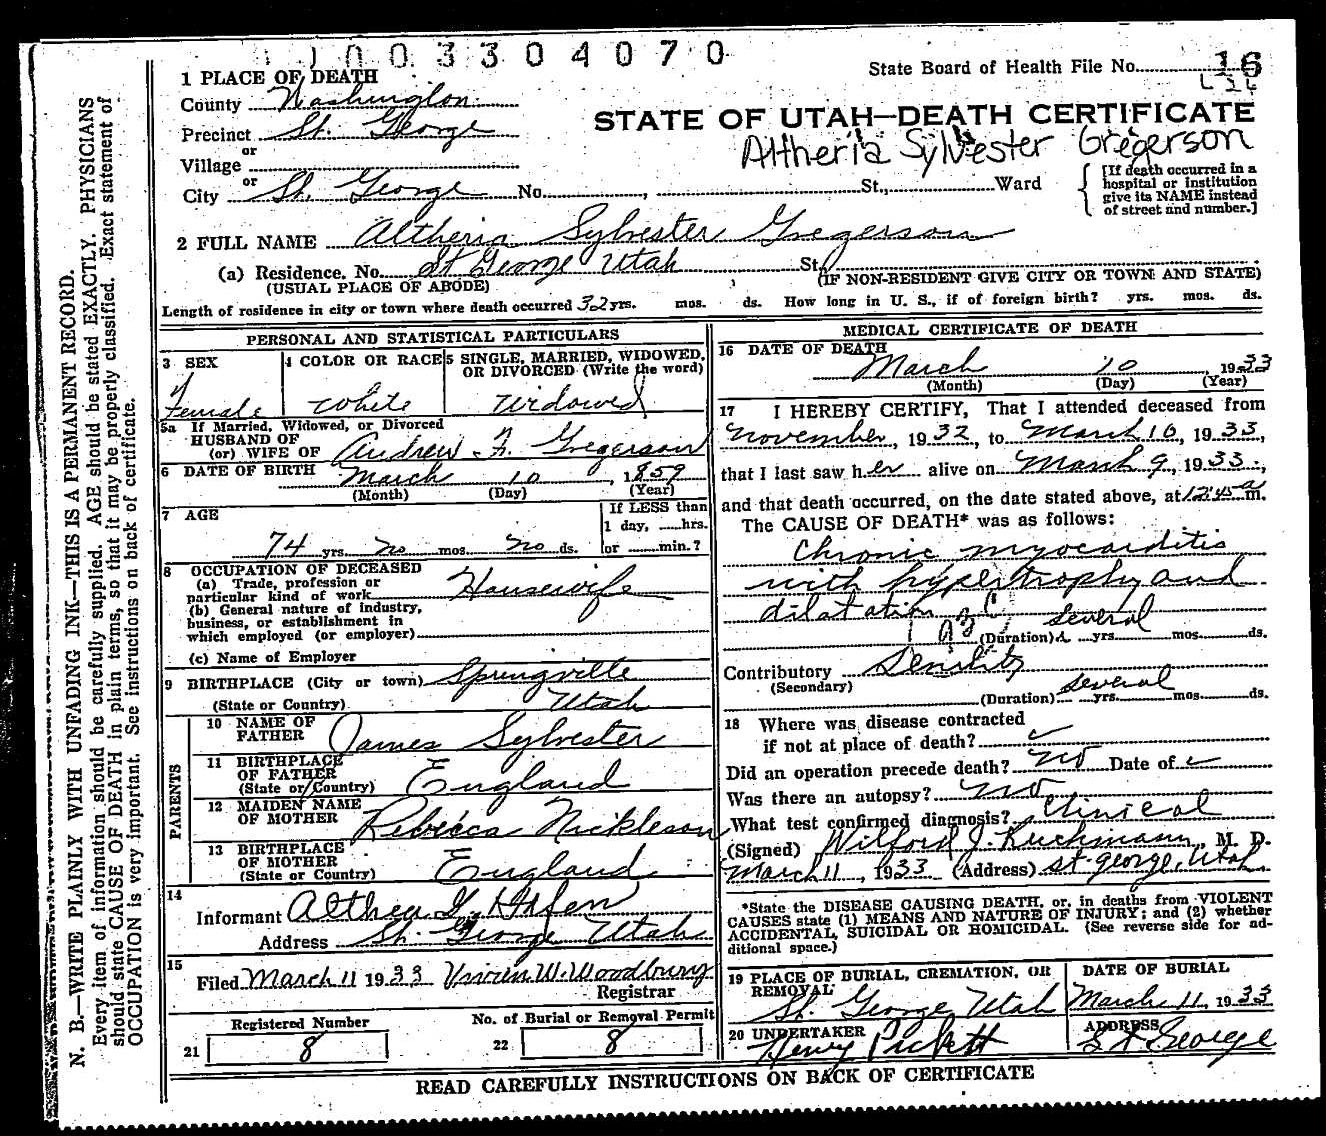 1003304070
State Board of Health File No. 16
1 PLACE OF DEATH
County Washington
Precinct St. George
or
Village
or
City St. George No. , St., Ward
STATE OF UTAH—DEATH CERTIFICATE
Altheria Sylvester Gregerson
[If death occurred in a
hospital or institution
give its NAME instead
of street and number.]
2 FULL NAME Altheria Sylvester Gregerson
(a) Residence. No. St George Utah St.
(USUAL PLACE OF ABODE) (IF NON-RESIDENT GIVE CITY OR TOWN AND STATE)
Length of residence in city or town where death occurred 32 yrs. mos. ds. How long in U. S., if of foreign birth? yrs. mos. ds.
PERSONAL AND STATISTICAL PARTICULARS
3 SEX
Female
4 COLOR OR RACE
White
5 SINGLE, MARRIED, WIDOWED,
OR DIVORCED (Write the word)
Widowed
5a If Married, Widowed, or Divorced
HUSBAND OF
(or) WIFE OF Andrew F. Gregerson
6 DATE OF BIRTH March 10, 1859
(Month) (Day) (Year)
7 AGE
74 yrs. no mos. no ds.
If LESS than
1 day, hrs.
or min.?
8 OCCUPATION OF DECEASED
(a) Trade, profession or
particular kind of work Housewife
(b) General nature of industry,
business, or establishment in
which employed (or employer)
(c) Name of Employer
9 BIRTHPLACE (City or town) Springville
(State or Country) Utah
PARENTS
10 NAME OF
FATHER James Sylvester
11 BIRTHPLACE
OF FATHER
(State or Country) England
12 MAIDEN NAME
OF MOTHER Rebecca Nickleson
13 BIRTHPLACE
OF MOTHER
(State or Country) England
14
Informant Althea G. Hafen
Address St. George Utah
15
Filed March 11 1933 Vivien W. Woodbury
Registrar
Registered Number
21 8
No. of Burial or Removal Permit
22 8
MEDICAL CERTIFICATE OF DEATH
16 DATE OF DEATH
March 10, 1933
(Month) (Day) (Year)
17 I HEREBY CERTIFY, That I attended deceased from
November, 1932, to March 10, 1933,
that I last saw her alive on March 9, 1933,
and that death occurred, on the date stated above, at 12:45 a m.
The CAUSE OF DEATH* was as follows:
Chronic myocarditis
with hypertrophy and
dilatation
(Duration) several yrs. mos. ds.
Contributory Senility
(Secondary)
(Duration) several yrs. mos. ds.
18 Where was disease contracted
if not at place of death?
Did an operation precede death? no Date of
Was there an autopsy? no
What test confirmed diagnosis? Clinical
(Signed) Wilford J. Reichmann, M. D.
March 11, 1933 (Address) St. George, Utah
*State the DISEASE CAUSING DEATH, or, in deaths from VIOLENT
CAUSES state (1) MEANS AND NATURE OF INJURY; and (2) whether
ACCIDENTAL, SUICIDAL OR HOMICIDAL. (See reverse side for ad-
ditional space.)
19 PLACE OF BURIAL, CREMATION, OR
REMOVAL
St. George, Utah
DATE OF BURIAL
March 11, 1933
20 UNDERTAKER
Henry Pickett
ADDRESS
St George
READ CAREFULLY INSTRUCTIONS ON BACK OF CERTIFICATE
N. B.—WRITE PLAINLY WITH UNFADING INK—THIS IS A PERMANENT RECORD.
Every item of information should be carefully supplied. AGE should be stated EXACTLY. PHYSICIANS
should state CAUSE OF DEATH in plain terms, so that it may be properly classified. Exact statement of
OCCUPATION is very important. See instructions on back of certificate.